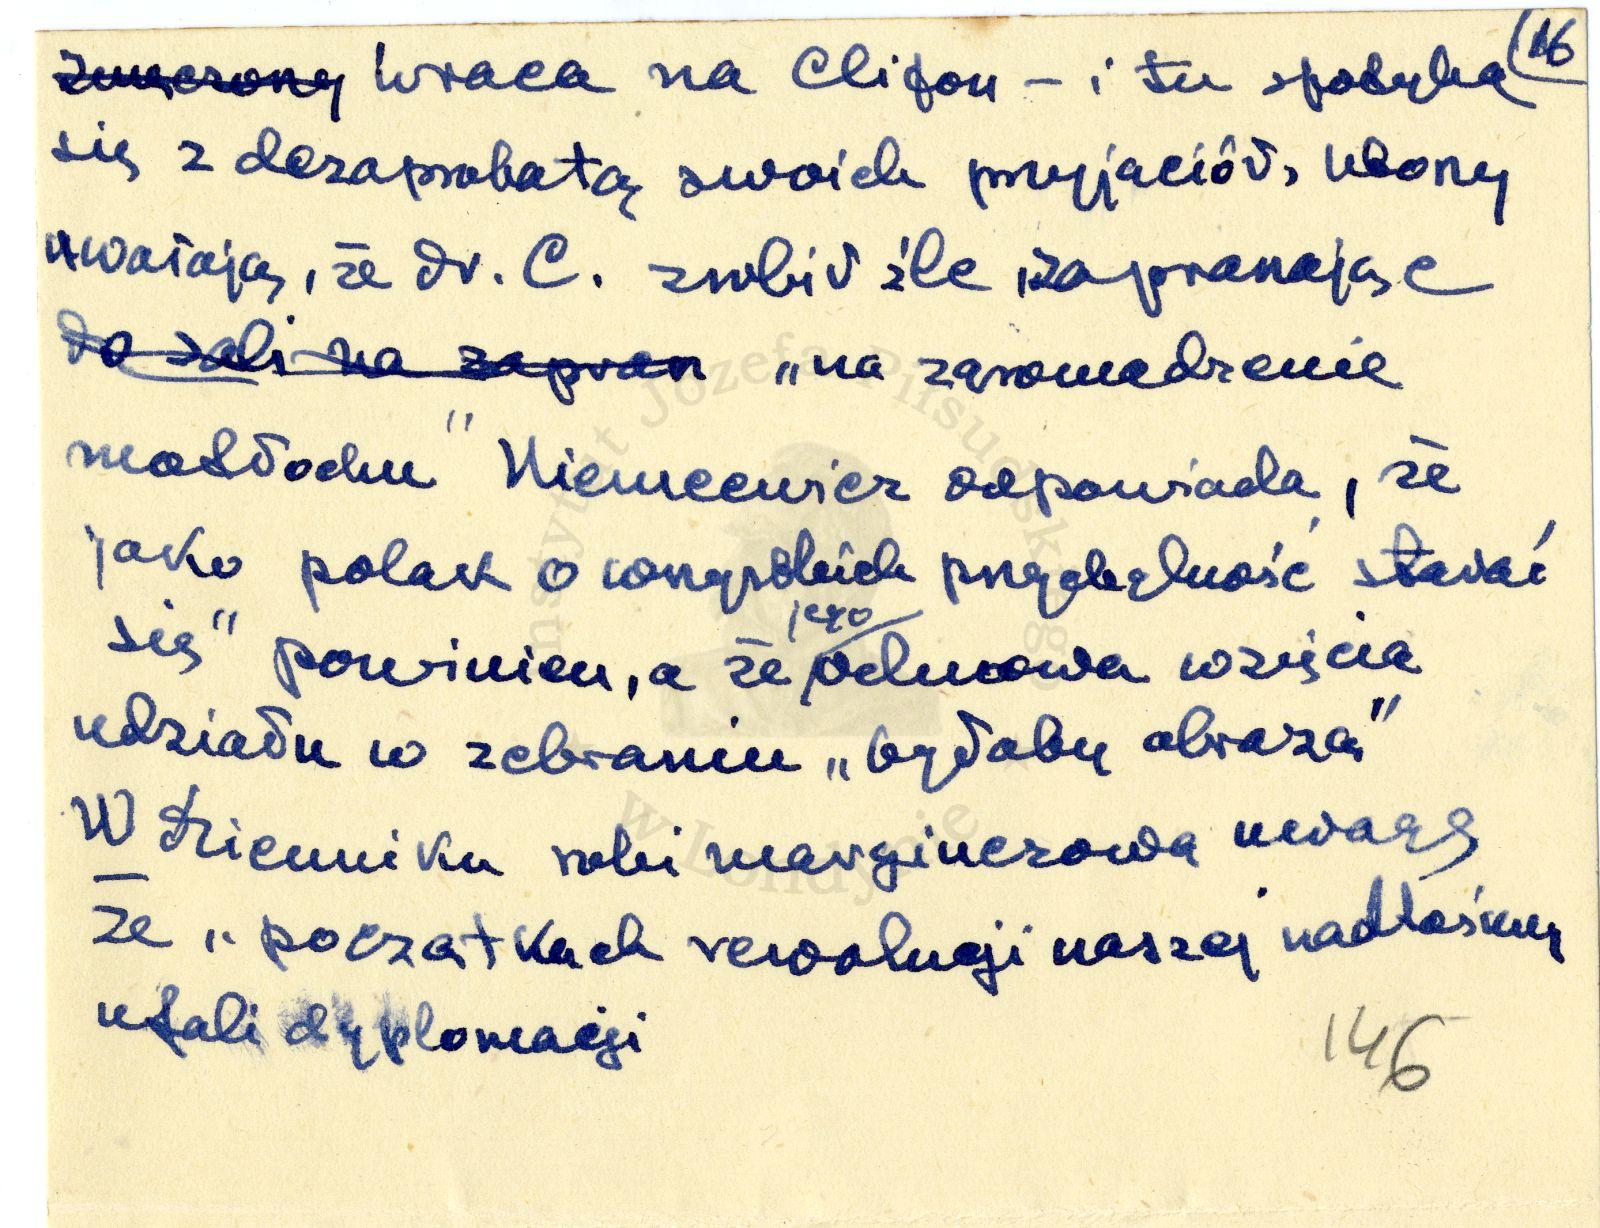 16
zmęczony wraca na Clifon – i tu spotyka
się z dezaprobatą swoich przyjaciół, którzy
uważają, że dr. C. zrobił źle zapraszając
do sali na zapran „na zgromadzenie
motłochu" Niemcewicz odpowiada, że
jako polak o wszystkich przychylność starać
się" powinien, a że jego odmowa wzięcia
udziału w zebraniu „byłaby obrazą"
W dzienniku robi marginesową uwagę
że „ początkach rewolucji naszej nadtośmy
ufali dyplomacji
146
Instytut Józefa Piłsudskiego
w Londynie